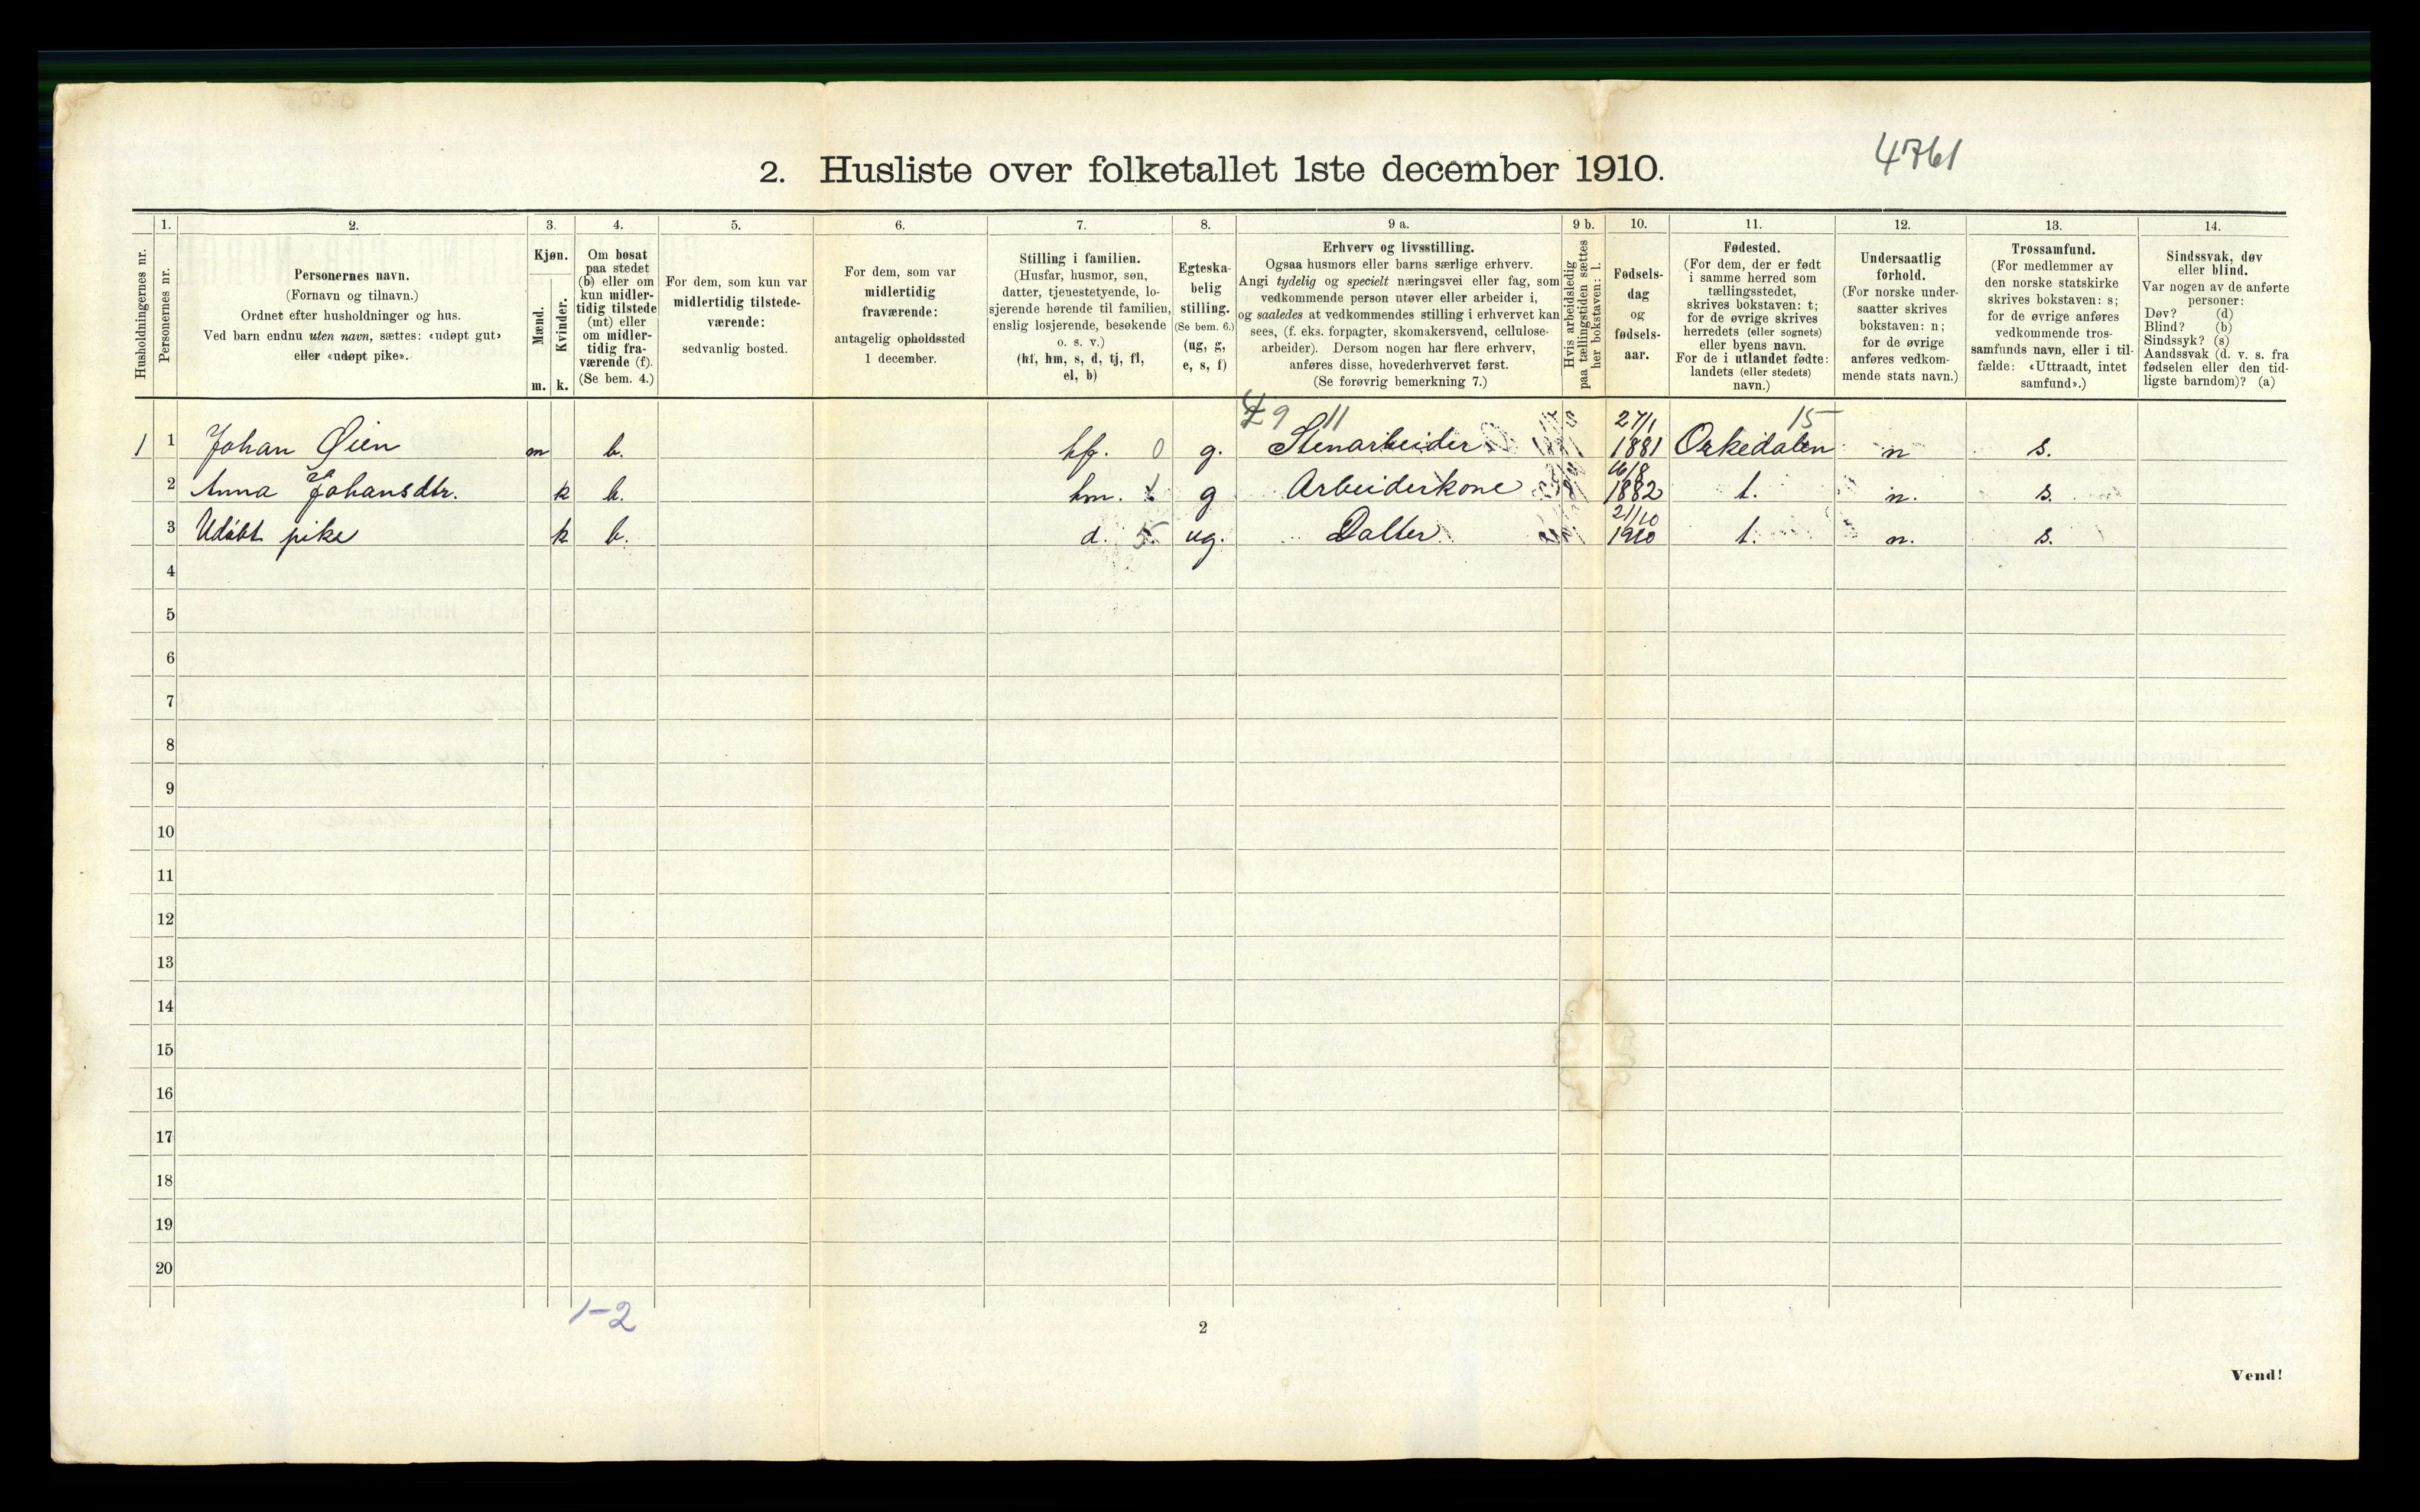 4761
2. Husliste over folketallet 1ste december 1910.
Husholdningernes nr.
1.
Personernes nr.
2.
Personernes navn.
(Fornavn og tilnavn.)
Ordnet efter husholdninger og hus.
Ved barn endnu uten navn, sættes: «udøpt gut»
eller «udøpt pike».
3.
Kjøn.
Mænd.
Kvinder.
m. k.
4.
Om bosat
paa stedet
(b) eller om
kun midler-
tidig tilstede
(mt) eller
om midler-
tidig fra-
værende (f).
(Se bem. 4.)
5.
For dem, som kun var
midlertidig tilstede-
værende:
sedvanlig bosted.
6.
For dem, som var
midlertidig
fraværende:
antagelig opholdssted
1 december.
7.
Stilling i familien.
(Husfar, husmor, søn,
datter, tjenestetyende, lo-
sjerende hørende til familien,
enslig losjerende, besøkende
o. s. v.)
(hf, hm, s, d, tj, fl,
el, b)
8.
Egteska-
belig
stilling.
(Se bem. 6.)
(ug, g,
e, s, f)
9 a.
Erhverv og livsstilling.
Ogsaa husmors eller barns særlige erhverv.
Angi tydelig og specielt næringsvei eller fag, som
vedkommende person utøver eller arbeider i,
og saaledes at vedkommendes stilling i erhvervet kan
sees, (f. eks. forpagter, skomakersvend, cellulose-
arbeider). Dersom nogen har flere erhverv,
anføres disse, hovederhvervet først.
(Se forøvrig bemerkning 7.)
9 b.
Hvis arbeidsledig
paa tællingstiden sættes
her bokstaven: l.
10.
Fødsels-
dag
og
fødsels-
aar.
11.
Fødested.
(For dem, der er født
i samme herred som
tællingsstedet,
skrives bokstaven: t;
for de øvrige skrives
herredets (eller sognets)
eller byens navn.
For de i utlandet fødte:
landets (eller stedets)
navn.)
12.
Undersaatlig
forhold.
(For norske under-
saatter skrives
bokstaven: n;
for de øvrige
anføres vedkom-
mende stats navn.)
13.
Trossamfund.
(For medlemmer av
den norske statskirke
skrives bokstaven: s;
for de øvrige anføres
vedkommende tros-
samfunds navn, eller i til-
fælde: «Uttraadt, intet
samfund».)
14.
Sindssvak, døv
eller blind.
Var nogen av de anførte
personer:
Døv? (d)
Blind? (b)
Sindssyk? (s)
Aandssvak (d. v. s. fra
fødselen eller den tid-
ligste barndom)? (a)
9 11 27/1 15
1 1 Johan Øien m b. hf. 0 g. Stenarbeider 1881 Orkedalen n s.
2 Anna Johansdtr. k b. hm. g Arbeiderkone 16/8 1882 t. n. s.
3 Udøbt pike k b. d. 5 ug. Datter 21/10 1910 t. n. s.
4
5
6
7
8
9
10
11
12
13
14
15
16
17
18
19
20
1-2
2
Vend!